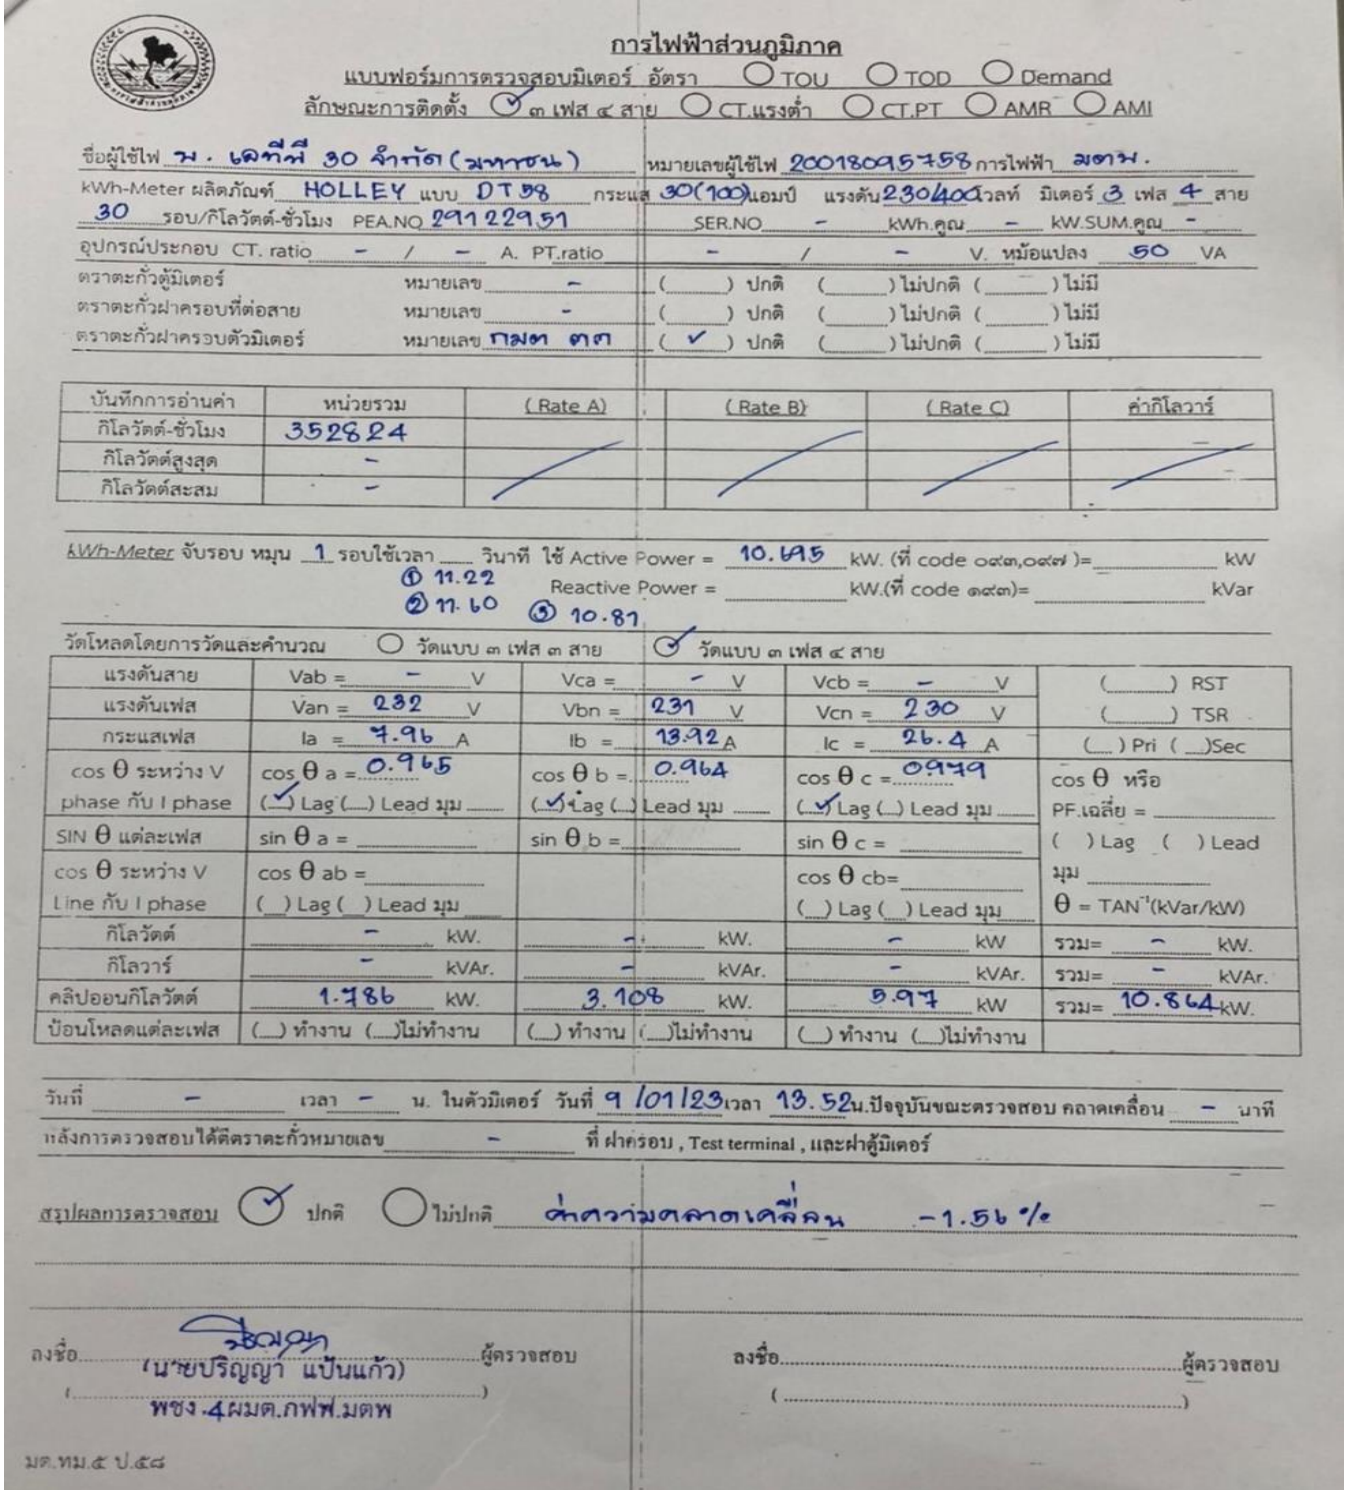 การไฟฟ้าส่วนภูมิภาค
แบบฟอร์มการตรวจสอบมิเตอร์ อัตรา TOU TOD Demand
ลักษณะการติดตั้ง ✓ ๓ เฟส ๔ สาย CT.แรงต่ำ CT.PT AMR AMI
ชื่อผู้ใช้ไฟ บ. เจทีพี 30 จำกัด (มหาชน) หมายเลขผู้ใช้ไฟ 20018095758 การไฟฟ้า มตพ.
kWh-Meter ผลิตภัณฑ์ HOLLEY แบบ DT58 กระแส 30(100) แอมป์ แรงดัน 230/400 โวลท์ มิเตอร์ 3 เฟส 4 สาย
30 รอบ/กิโลวัตต์-ชั่วโมง PEA.NO 29122951 SER.NO - kWh.คูณ - kW.SUM.คูณ -
อุปกรณ์ประกอบ CT. ratio - / - A. PT.ratio - / - V. หม้อแปลง 50 VA
ตราตะกั่วตู้มิเตอร์ หมายเลข - ( ) ปกติ ( ) ไม่ปกติ ( ) ไม่มี
ตราตะกั่วฝาครอบที่ต่อสาย หมายเลข - ( ) ปกติ ( ) ไม่ปกติ ( ) ไม่มี
ตราตะกั่วฝาครอบตัวมิเตอร์ หมายเลข กมต ๓๓ ( ✓ ) ปกติ ( ) ไม่ปกติ ( ) ไม่มี
บันทึกการอ่านค่า หน่วยรวม (Rate A) (Rate B) (Rate C) ค่ากิโลวาร์
กิโลวัตต์-ชั่วโมง 352824
กิโลวัตต์สูงสุด -
กิโลวัตต์สะสม -
kWh-Meter จับรอบ หมุน 1 รอบใช้เวลา วินาที ใช้ Active Power = 10.695 kW. (ที่ code ๐๙๓,๐๙๗ )= kW
① 11.22 Reactive Power = kW.(ที่ code ๑๙๓)= kVar
② 11.60 ③ 10.81
วัดโหลดโดยการวัดและคำนวณ วัดแบบ ๓ เฟส ๓ สาย ✓ วัดแบบ ๓ เฟส ๔ สาย
แรงดันสาย Vab = - V Vca = - V Vcb = - V ( ) RST
แรงดันเฟส Van = 232 V Vbn = 231 V Vcn = 230 V ( ) TSR
กระแสเฟส Ia = 7.96 A Ib = 13.92 A Ic = 26.4 A ( ) Pri ( )Sec
cos θ ระหว่าง V cos θ a = 0.965 cos θ b = 0.964 cos θ c = 0.979 cos θ หรือ
phase กับ I phase (✓) Lag ( ) Lead มุม (✓) Lag ( ) Lead มุม (✓) Lag ( ) Lead มุม PF.เฉลี่ย =
SIN θ แต่ละเฟส sin θ a = sin θ b = sin θ c = ( ) Lag ( ) Lead
cos θ ระหว่าง V cos θ ab = cos θ cb= มุม
Line กับ I phase ( ) Lag ( ) Lead มุม ( ) Lag ( ) Lead มุม θ = TAN⁻¹(kVar/kW)
กิโลวัตต์ - kW. - kW. - kW รวม= - kW.
กิโลวาร์ - kVAr. - kVAr. - kVAr. รวม= - kVAr.
คลิปออนกิโลวัตต์ 1.786 kW. 3.108 kW. 5.97 kW รวม= 10.864 kW.
ป้อนโหลดแต่ละเฟส ( ) ทำงาน ( )ไม่ทำงาน ( ) ทำงาน ( )ไม่ทำงาน ( ) ทำงาน ( )ไม่ทำงาน
วันที่ - เวลา - น. ในตัวมิเตอร์ วันที่ 9 /01/23 เวลา 13.52 น.ปัจจุบันขณะตรวจสอบ คลาดเคลื่อน - นาที
หลังการตรวจสอบได้ตีตราตะกั่วหมายเลข - ที่ ฝาครอบ , Test terminal , และฝาตู้มิเตอร์
สรุปผลการตรวจสอบ ✓ ปกติ ไม่ปกติ ค่าความคลาดเคลื่อน -1.56 %
ลงชื่อ ปริญญา ผู้ตรวจสอบ ลงชื่อ ผู้ตรวจสอบ
(นายปริญญา แป้นแก้ว) ( )
พชง.4ผมต.กฟฟ.มตพ
มต.ทม.๕ ป.๕๘